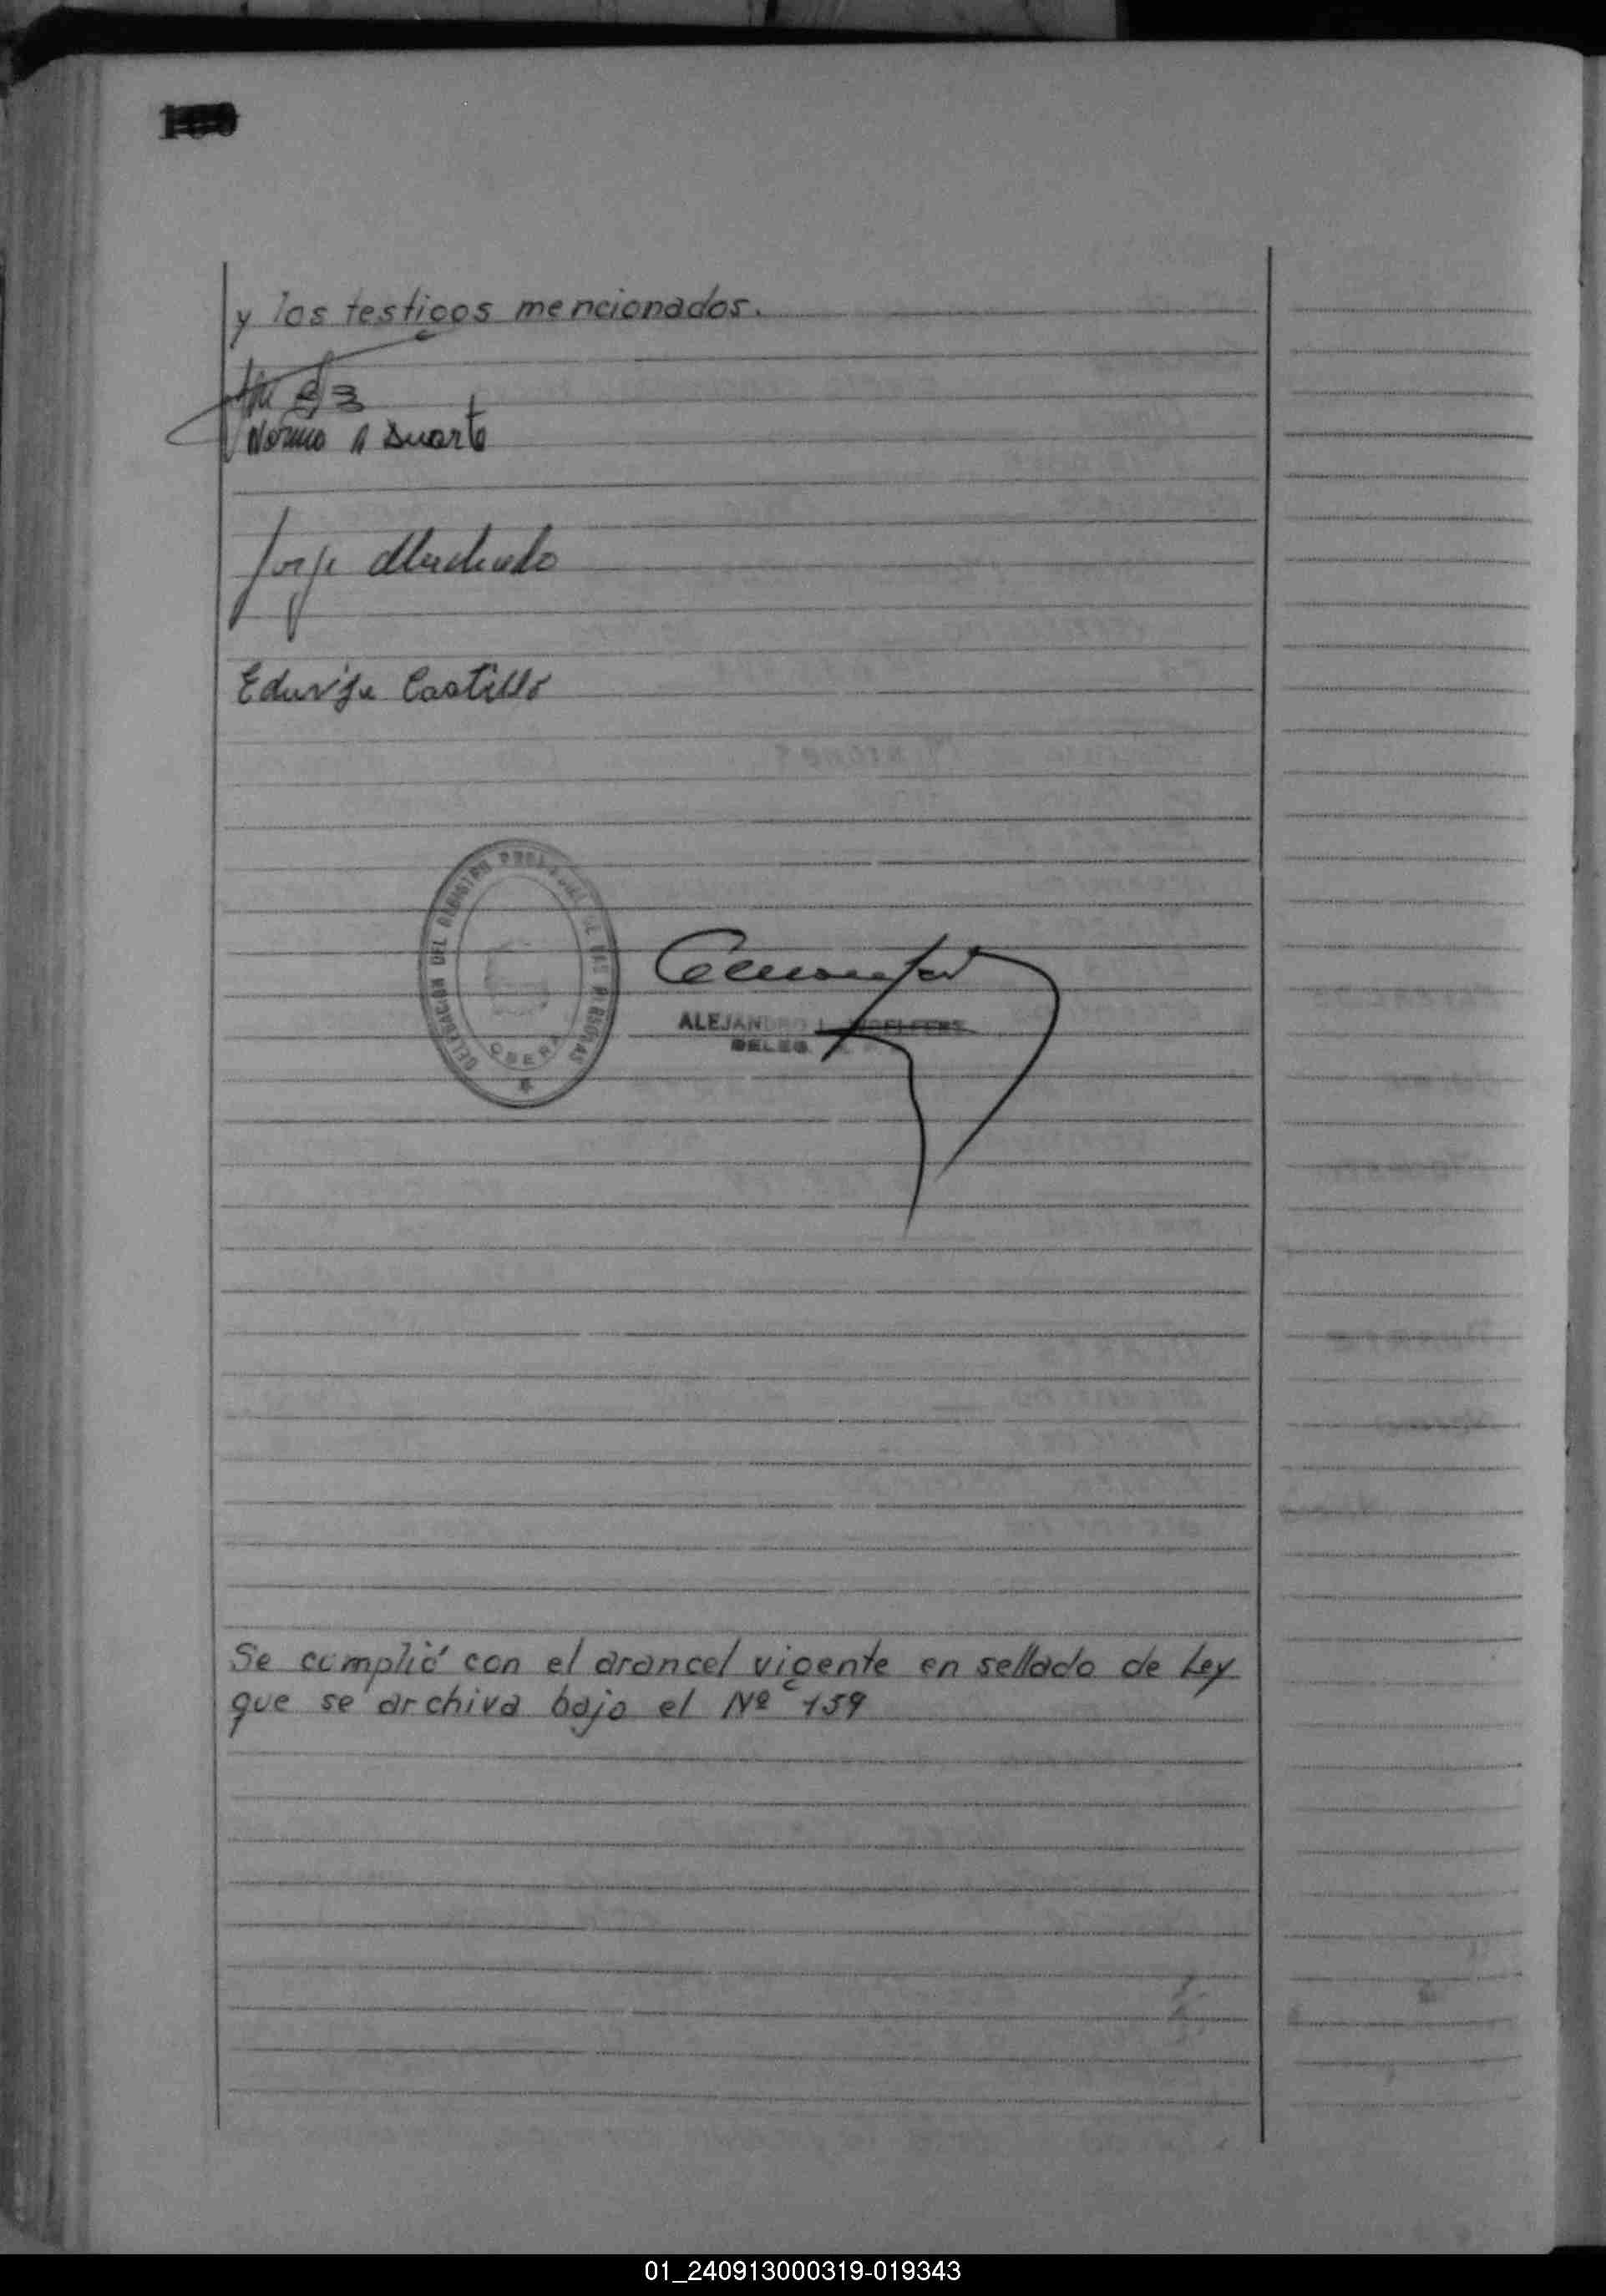 y los testigos mencionados.
Norma A Duarte
Jorge Machado
Eduvije Castillo
DELEGACION DEL REGISTRO PROVINCIAL DE LAS PERSONAS
OBERA
ALEJANDRO
DELEG.
Se cumplió con el arancel vigente en sellado de Ley
que se archiva bajo el Nº 159
01_240913000319-019343